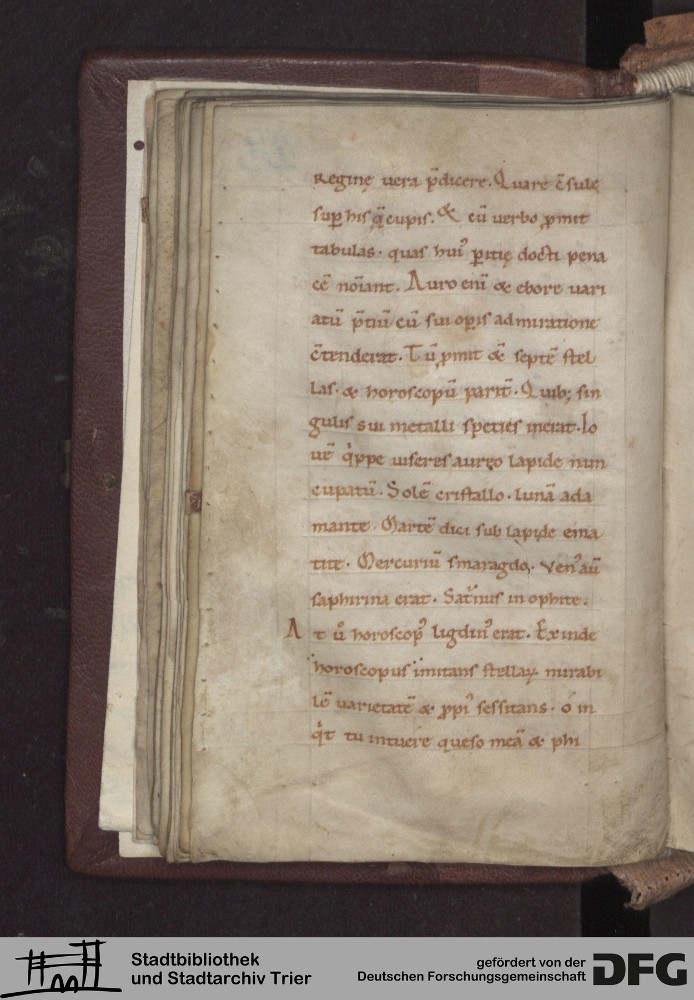 Regine vera p̄dicere. Quare c̄sule
sup his q̄ cupis. & cū verbo ꝓmit
tabulas. quas hui᾽ ꝑitię docti pena
cē noīant. Auro enī & ebore vari
atū p̄tiū cū sui oꝑis admiratione
c̄tenderat. Tū ꝓmit & septē stel
las. & horoscopū parit̄. Quib; sin
gulis sui metalli speties inerat. Io
uē qͥppe viseres aureo lapide nun
cupatū. Solē cristallo. lunā ada
mante. Martē dici sub lapide ema
tite. Mercuriū smaragdo. Ven᾽ aū
saphirina erat. Sat̄nus in ophite.
At ů horoscop᾽ ligdin᾽ erat. Exinde
horoscopus imitans stellaꝝ mirabi
lē varietatē & ꝓpi᾽ sessitans. o in
qͥt tu intuere queso meā & phi
Stadtbibliothek
und Stadtarchiv Trier
gefördert von der
Deutschen Forschungsgemeinschaft
DFG